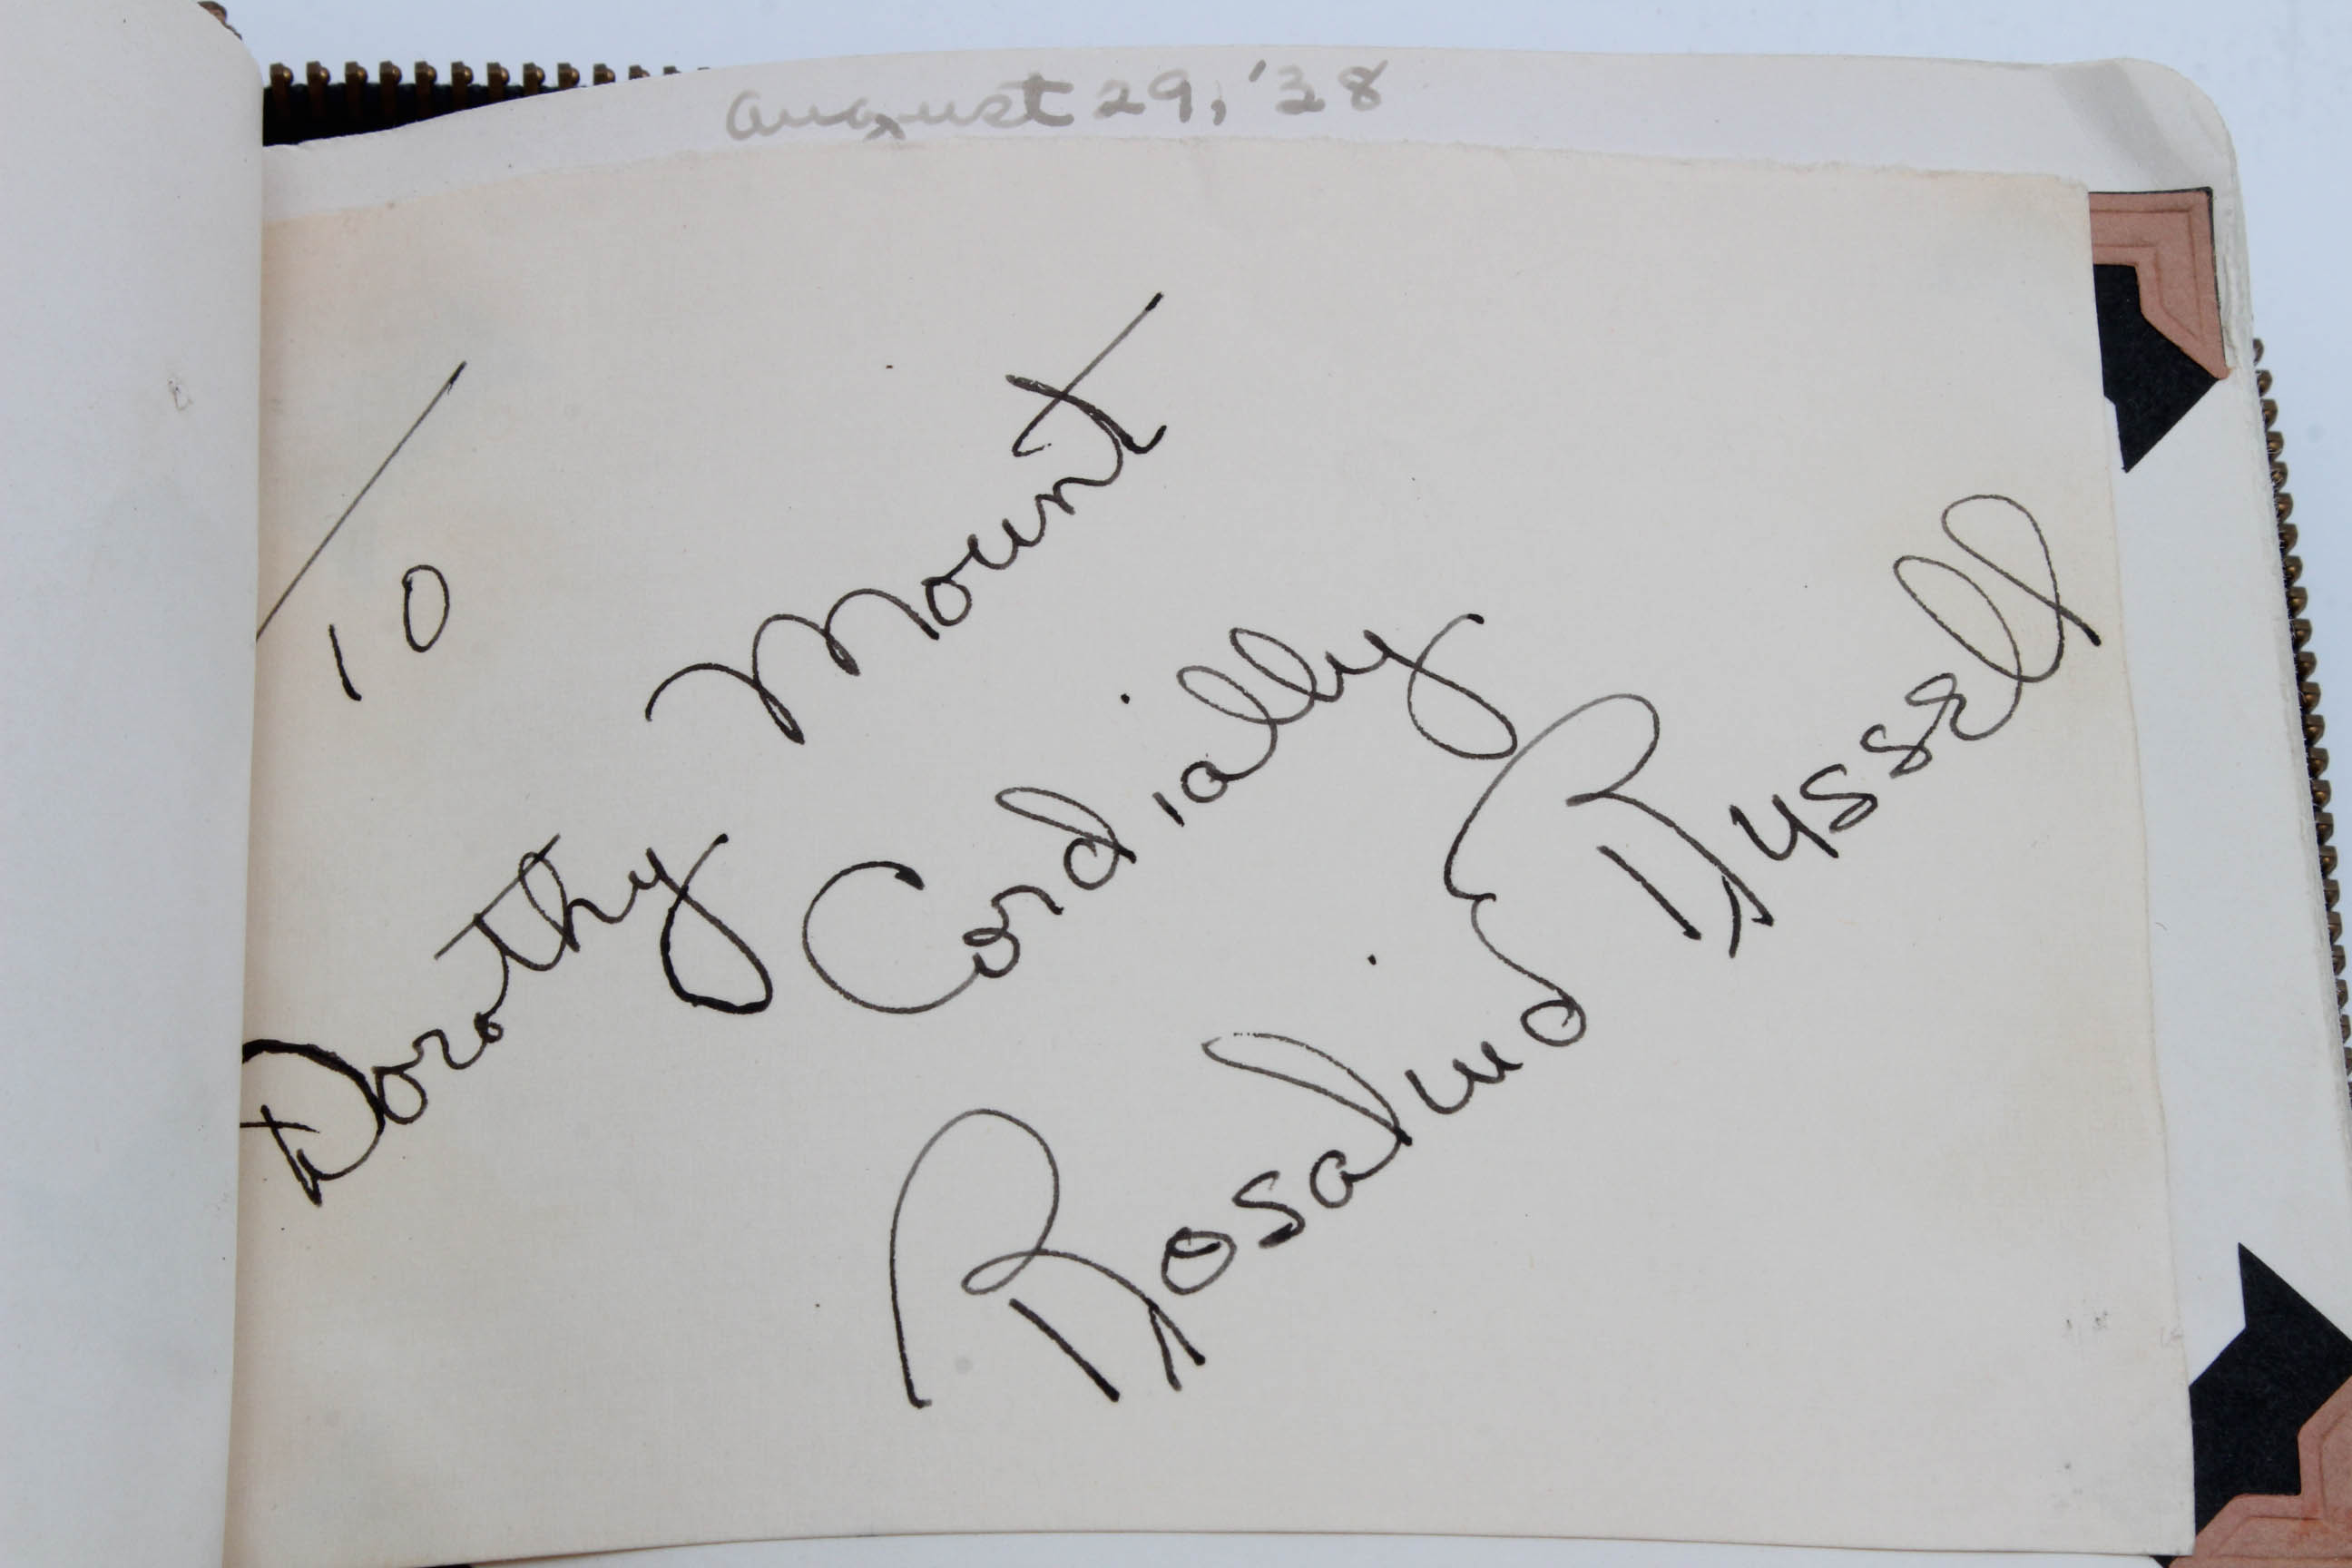 august 29, '38
To
Dorothy Mount
Cordially
Rosalind Russell